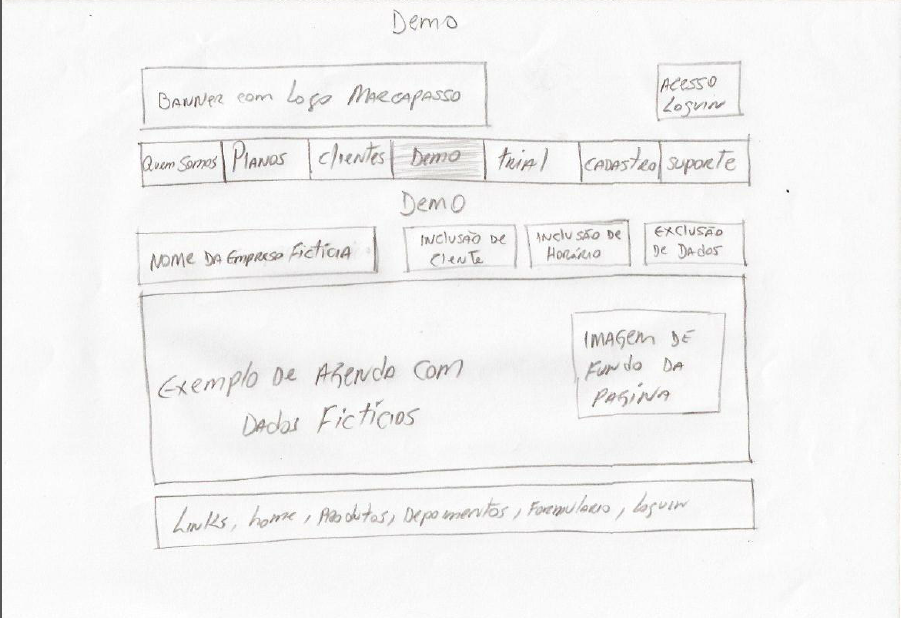 Demo
BANNER com Logo MARCAPASSO
ACESSO
LOGUIN
Quem Somos PLANOS Clientes Demo TRIAL CADASTRO SUPORTE
Demo
NOME DA EMPRESA FICTÍCIA
INCLUSÃO DE
Cliente
INCLUSÃO DE
HORÁRIO
EXCLUSÃO
DE DADOS
Exemplo De AGENDA COM
DADOS FICTÍCIOS
IMAGEM DE
FUNDO DA
PAGÍNA
Links, home, Produtos, Depoimentos, Formulário, Loguin